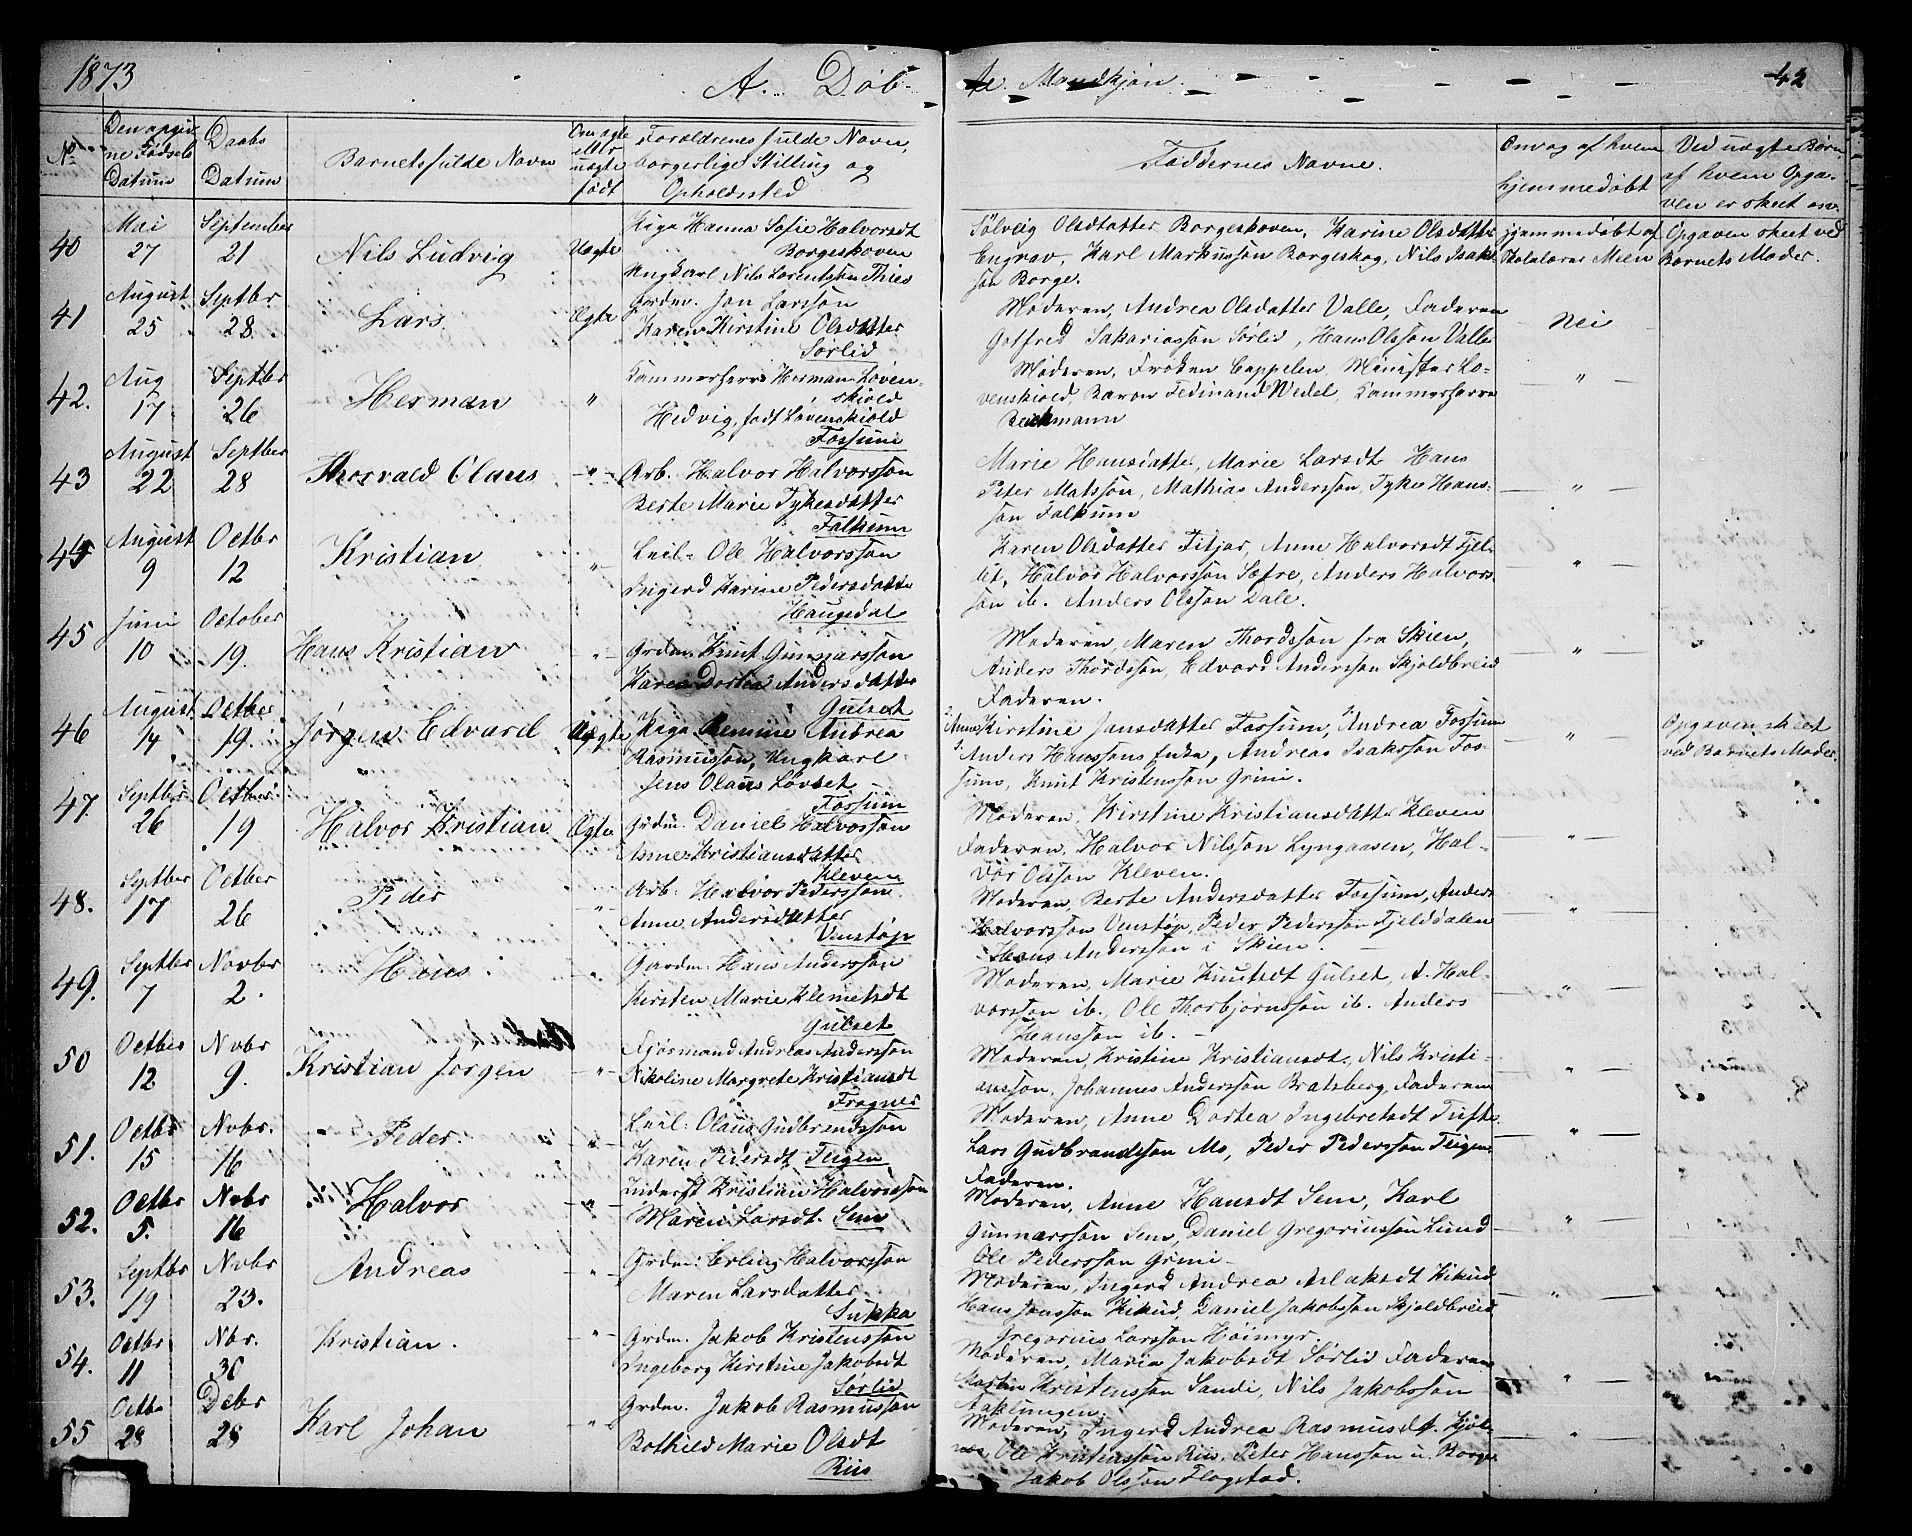 1873
A. Døb-
te. Mandkjøn.
42
No
Den opgiv
ne Fødsels
Datum
Daabs
Datum
Barnets fulde Navn
Om ægte
eller
uægte
født
Forældrenes fulde Navn,
borgerlige Stilling og
Opholdssted
Faddernes Navne.
Om og af hvem
hjemmedøbt
Ved uægte Børn,
af hvem Opga-
ven er skeet om
40
Mai
27
September
21
Nils Ludvig
Uægte
Piga Hanna Sofie Halvorsdt
Borgeskoven
Ungkarl Nils Lorentsen Thies
Sölveig Olsdatter Borgeskoven, Karine Olsdatter
Engrav, Karl Markusson Borgeskog, Nils Isak-
son Borge.
hjemmedöbt af
Kirkelærer Mæen
Opgaven skeet ved
Barnets Moder.
41
August
25
Septbr
28
Lars
Ægte
Gordm. Jon Larsson
Karen Kirstine Olsdatter
Sørlid
Moderen, Andrea Olsdatter Valle, Faderen
Gotfred Sakariasson Sörlid, Hans Olsson Valle
Nei
42.
Aug
17
Septbr
26
Herman
"
Kammerherre Herman Løven-
skiold
Hedvig, født Løvenskiold
Fossum
Moderen, Frøken Cappelen, Minister Lö-
venskiold, Baron Ferdinand Wedel, Kammerherre
"
43
August
22
Septber
28
Thorvald Olaus
"
Arb. Halvor Halvorsson
Berte Marie Tykesdatter
Falkum
Marie Hansdatter, Marie Larsdt Hans
Peter Matsson, Mathias Andersson, Tyke Hans-
son Falkum
"
44
August
9
Octbr
12
Kristian
"
Leil- Ole Halvorsson
Ingerd Karine Pedersdatter
Haugsdal
Karen Olsdatter Fitjar, Anne Halvorsdt Fjel-
let, Halvor Halvorsson Sætre, Anders Halvors-
son ib. Anders Olsson Dale.
"
45
Juni
10
October
19.
Hans Kristian
"
Grdm. Knut Gunnarsson
Karen Dortea Andersdatter
Gulset
Moderen, Maren Thordsson fra Skien,
Anders Thordsson, Edvard Andersson Skjoldbreid
Faderen.
"
46
August
14
Octber
19.
Jørgen Edvard
Uægte
Piga Andrea
Rasmusson, Ungkarl
Jens Olaus Lövset
Fossum
Anne Kirstine Jansdatter Fossum, Andrea Fossum
Anders Hanssons Enke, Andreas Isaksson Fos-
sum, Knut Kristensson Grini.
"
Opgaven skeet
ved Barnets Moder.
47.
Septbr
26
Octber
19
Halvor Kristian
Ægte
Grdm. Daniel Halvorsson
Anne Kristiansdatter
Kleven
Moderen, Kirstine Kristiansdatter Kleven
Faderen, Halvor Nilsson Lyngaasen, Hal-
vor Olsson Kleven.
"
48.
Septber
17
Octber
26
Peder
"
Arb. Halvor Pedersson
Anne Andersdatter
Venstøp
Moderen, Berte Andersdatter Fossum, Anders
Halvorsson Venstøp, Peder Pedersson Fjelddalen
Hans Andersson i Skien.
"
49.
Septber
7
Novbr
2.
Hans
"
Gardm. Hans Andersson
Kirsten Marie Klemetsdt
Gulset
Moderen, Marie Knutsdt Gulset, A. Hal-
vorsson ib., Ole Thorbjörnsson ib. Anders
Hansson ib.
"
50
Octber
12
Novbr
9.
Kristian Jörgen
"
Fjösmand Andreas Andersson
Nikoline Margrete Kristiansdt
Frogner
Moderen, Kristine Kristiansdt, Nils Kristi-
ansson, Johannes Andersson Bratsberg, Faderen
"
51.
Octbr
15
Novbr.
16
Peder.
"
Leil: Olaus Gudbrandsson
Karen Pedersdt Teigen
Moderen, Anne Dortea Ingebretsdt Tufte
Lars Gudbrandsson Mo, Peder Pedersson Teigen
Faderen.
"
52.
Octbr
5.
Novbr
16
Halvor
"
Inderst Kristian Halvorsson
Maren Larsdt. Sem
Moderen, Anne Hansdt Sem, Karl
Gunnarsson Sem, Daniel Gregoriusson Lund
Ole Pedersson Grini
"
53.
Septbr
19
Novbr
23.
Andreas
"
Grdm. Erling Halvorsson
Maren Larsdatter
Sukka
Moderen, Ingerd Andrea Aslaksdt Kikud
Hans Jonsson Kikud, Daniel Jakobsson Skjoldbreid
Gregorius Larsson Höimyr.
"
54.
Octbr
11
Nbr.
30
Kristian.
"
Grdm. Jakob Kristensson
Ingeborg Kirstine Jakobsdt
Sørlid
Moderen, Maria Jakobsdt Sörlid Faderen
Martin Kristensson Sandi, Nils Jakobsson
Aaklungen.
"
55
Octbr
28
Debr
28
Karl Johan
"
Grdm. Jakob Rasmusson
Bothild Marie Olsdt
Riis
Moderen, Ingerd Andrea Rasmusdt. Kjöl-
næs Ole Kristensson Riis, Peter Hansson u. Borge
Jakob Olsson Flogstad.
"